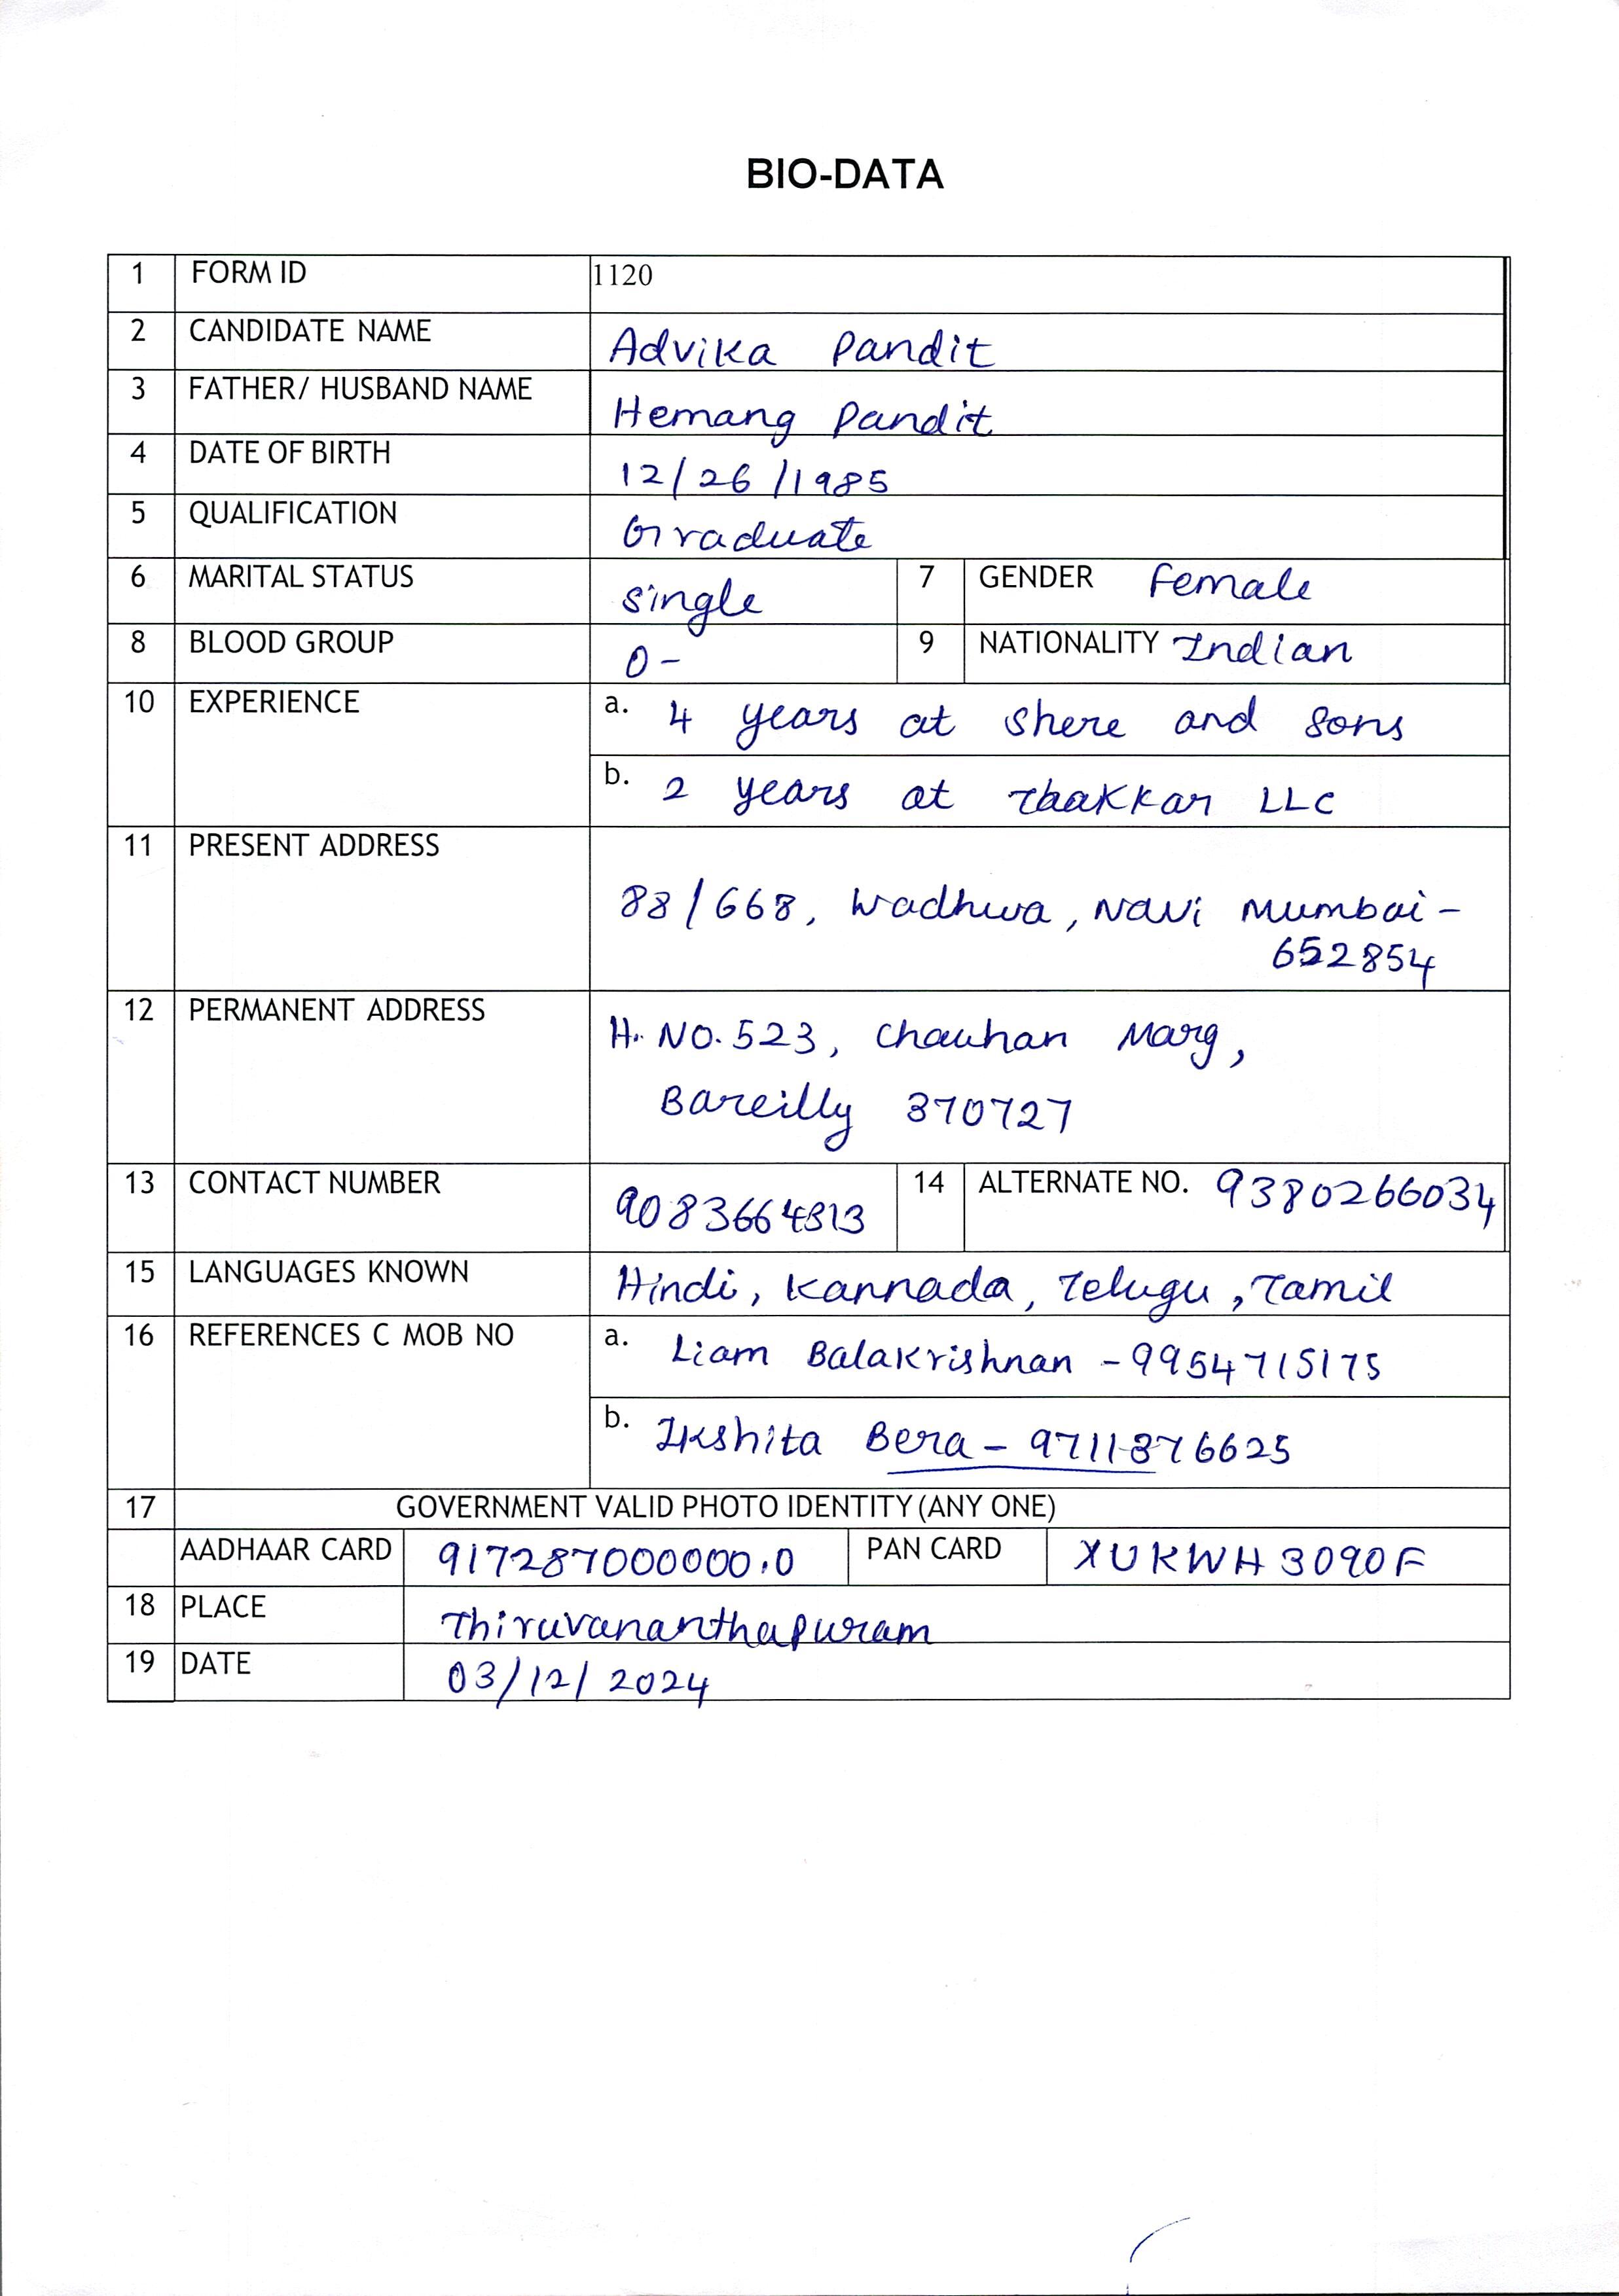 BIO-DATA
1 FORM ID 1120
2 CANDIDATE NAME Advika Pandit
3 FATHER/ HUSBAND NAME Hemang Pandit
4 DATE OF BIRTH 12/26/1985
5 QUALIFICATION Graduate
6 MARITAL STATUS single 7 GENDER Female
8 BLOOD GROUP O- 9 NATIONALITY Indian
10 EXPERIENCE a. 4 years at Shere and Sons
b. 2 years at Thakkar LLC
11 PRESENT ADDRESS
88/668, Wadhwa, Navi Mumbai-
652854
12 PERMANENT ADDRESS H. NO. 523, Chauhan Marg,
Bareilly 370727
13 CONTACT NUMBER 9083664313 14 ALTERNATE NO. 9380266034
15 LANGUAGES KNOWN Hindi, Kannada, Telugu, Tamil
16 REFERENCES C MOB NO a. Liam Balakrishnan - 9954715175
b. Ikshita Bera - 9711376625
17 GOVERNMENT VALID PHOTO IDENTITY (ANY ONE)
AADHAAR CARD 917287000000.0 PAN CARD XUKWH3090F
18 PLACE Thiruvananthapuram
19 DATE 03/12/2024